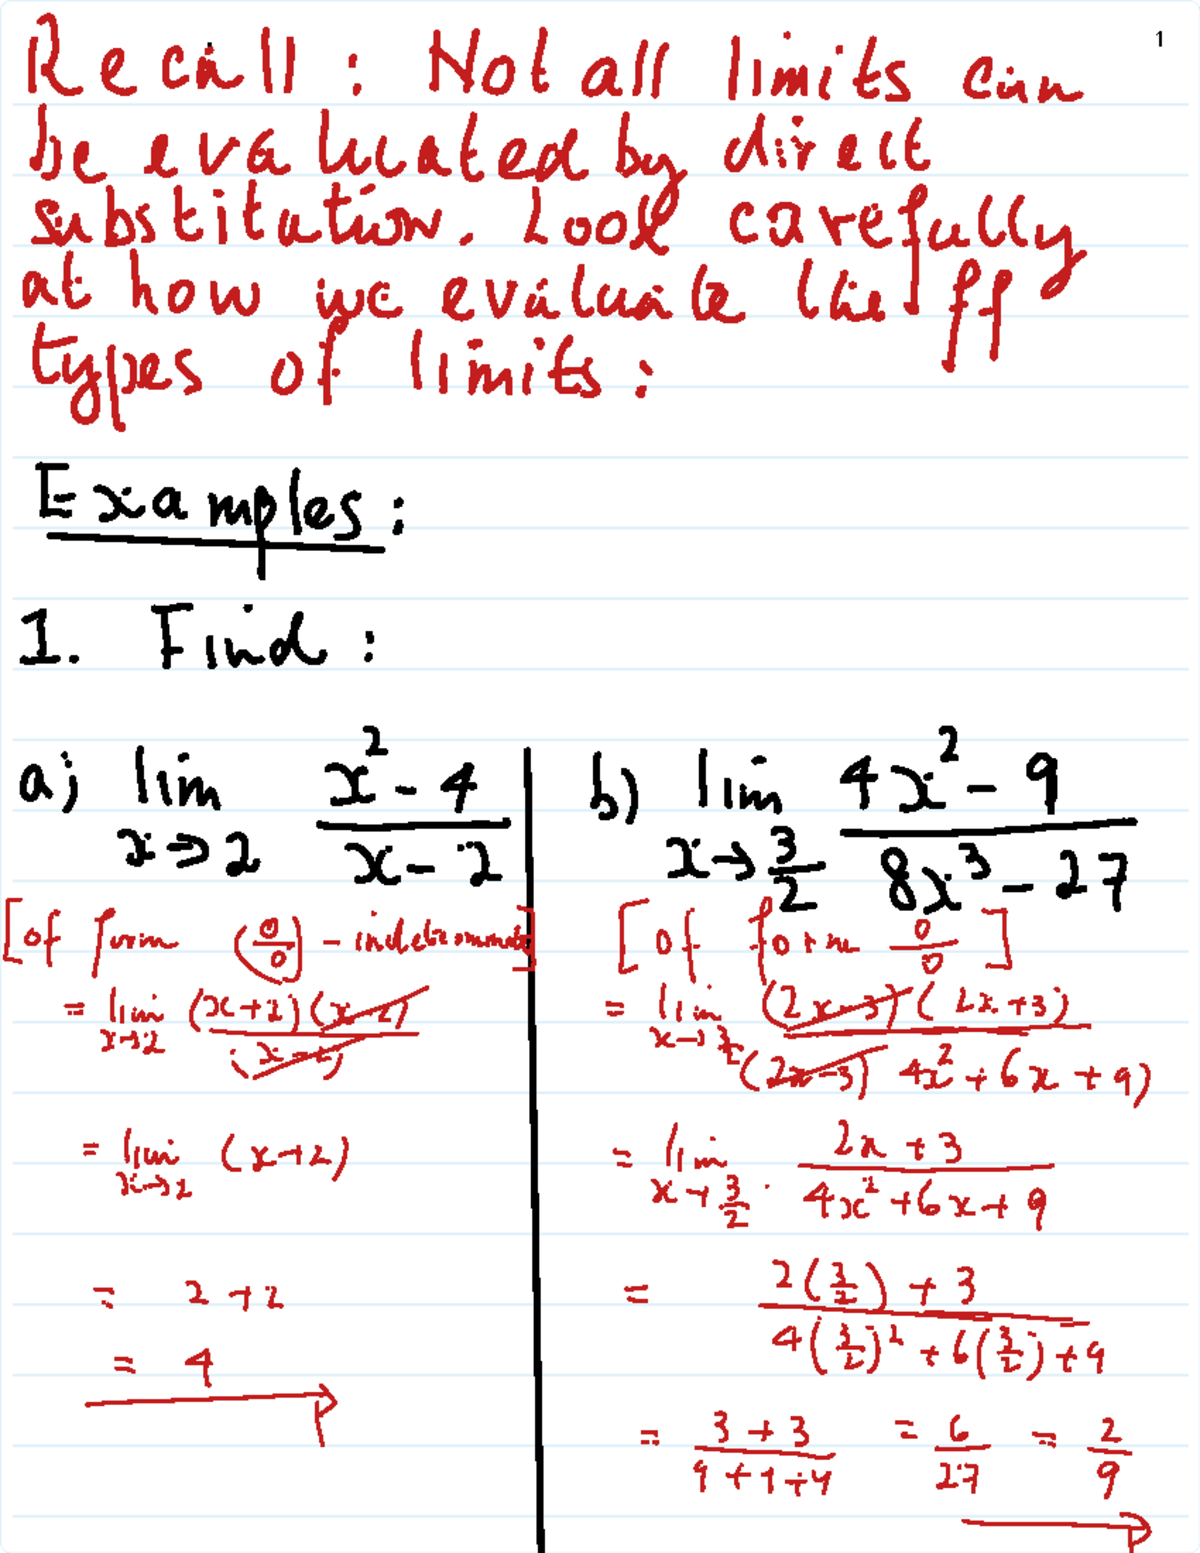 1
Recall: Not all limits can
be evaluated by direct
substitution. Look carefully
at how we evaluate the ff
types of limits:
Examples:
1. Find:
a) lim x→2 (x² - 4)/(x - 2)
[of form (0/0) - indeterminate]
= lim x→2 (x+2)(x-2)/(x-2)
= lim x→2 (x+2)
= 2+2
= 4
b) lim x→3/2 (4x² - 9)/(8x³ - 27)
[of form 0/0]
= lim x→3/2 (2x-3)(2x+3)/(2x-3) 4x²+6x+9)
= lim x→3/2 (2x+3)/(4x²+6x+9)
= (2(3/2)+3)/(4(3/2)²+6(3/2)+9)
= (3+3)/(9+9+9) = 6/27 = 2/9